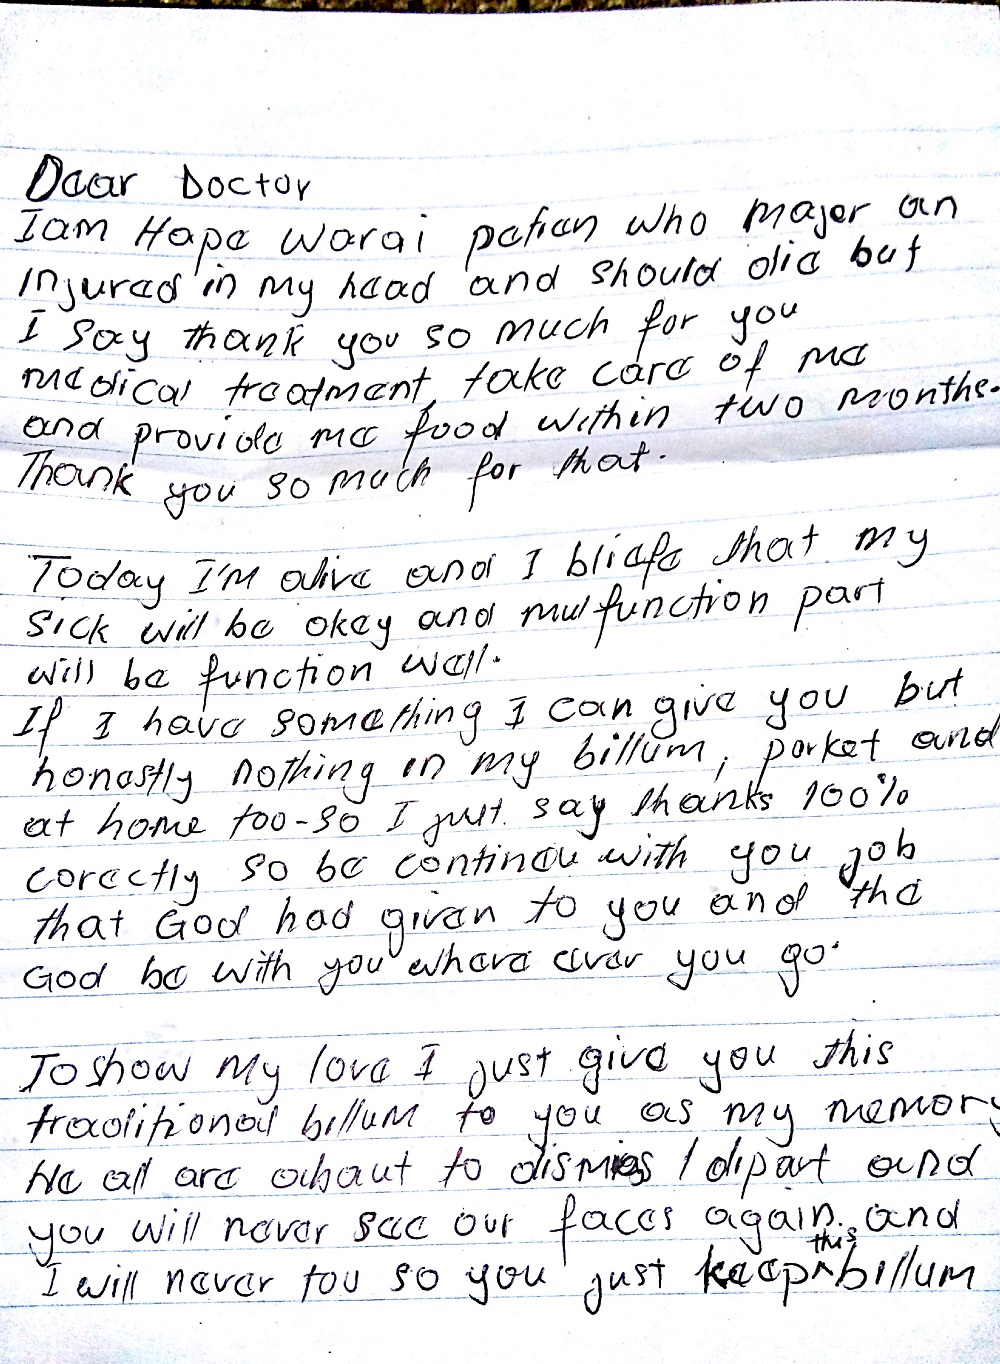 Dear Doctor
I am Hape Warai patien who majer an
Injured in my head and should die but
I say thank you so much for you
medical treatment, take care of me
and provide me food within two months.
Thank you so much for that.
Today I'm alive and I bliefe that my
sick will be okey and mulfunction part
will be function well.
If I have something I can give you but
honestly nothing in my billum, porket and
at home too - so I just say thanks 100%
corectly so be continou with you job
that God had given to you and the
God be with you where ever you go.
To show my love I just give you this
traditional billum to you as my memory
We all are abaut to dismiss / dipart and
you will never see our faces again. and
I will never tou so you just keep this billum